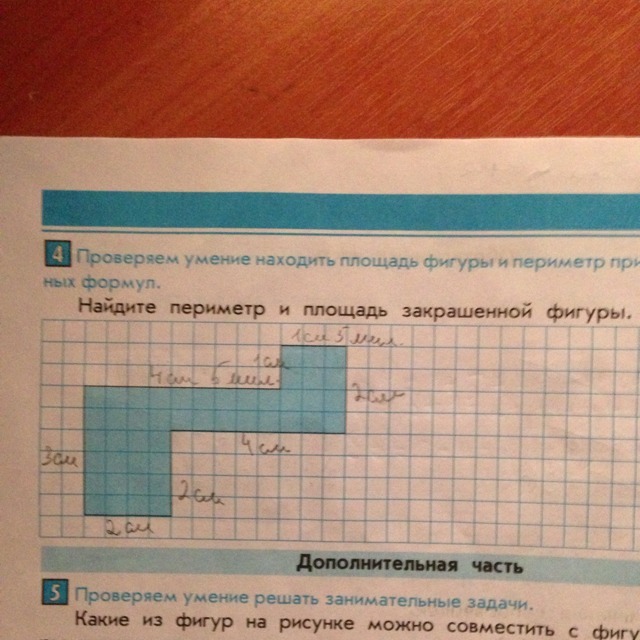 4 Проверяем умение находить площадь фигуры и периметр при
ных формул.
Найдите периметр и площадь закрашенной фигуры.
1см 5 мил.
1см
4см 5 мил.
2см
4 см
3см
2см
2см
Дополнительная часть
5 Проверяем умение решать занимательные задачи.
Какие из фигур на рисунке можно совместить с фигу